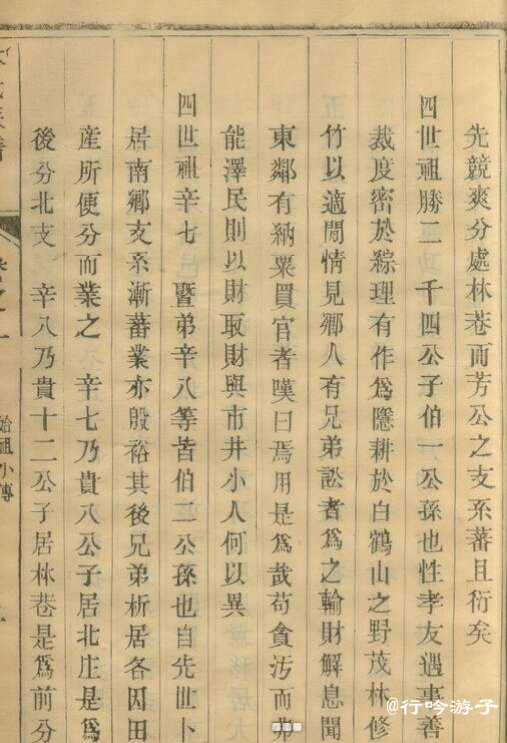 先競爽分處林巷而芳公之支系蕃且衍矣
四世祖勝二 千四公子伯一公孫也性孝友遇事善
裁度密於綜理有作為隱耕於白鶴山之野茂林修
竹以適閒情見鄉人有兄弟訟者為之輸財解息聞
東鄰有納粟買官者嘆曰焉用是為哉苟貪汚而弗
能澤民則以財取財與市井小人何以異
四世祖辛七暨弟辛八等皆伯二公孫也自先世卜
居南鄉支系漸蕃業亦殷裕其後兄弟析居各因田
産所便分而業之 辛七乃貴八公子居北庄是為
後分北支 辛八乃貴十二公子居林巷是為前分
始祖小傳
@行吟游子